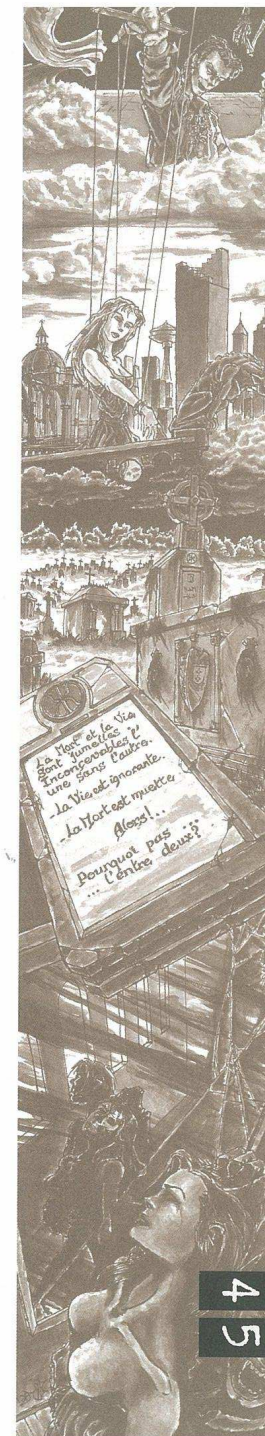 La Mort et la Vie
sont jumelles
Inconcevables l'
une sans l'autre.
-La Vie est ignorante.
-La Mort est muette
Alors!...
Pourquoi pas ...
... l'entre deux?
4
5